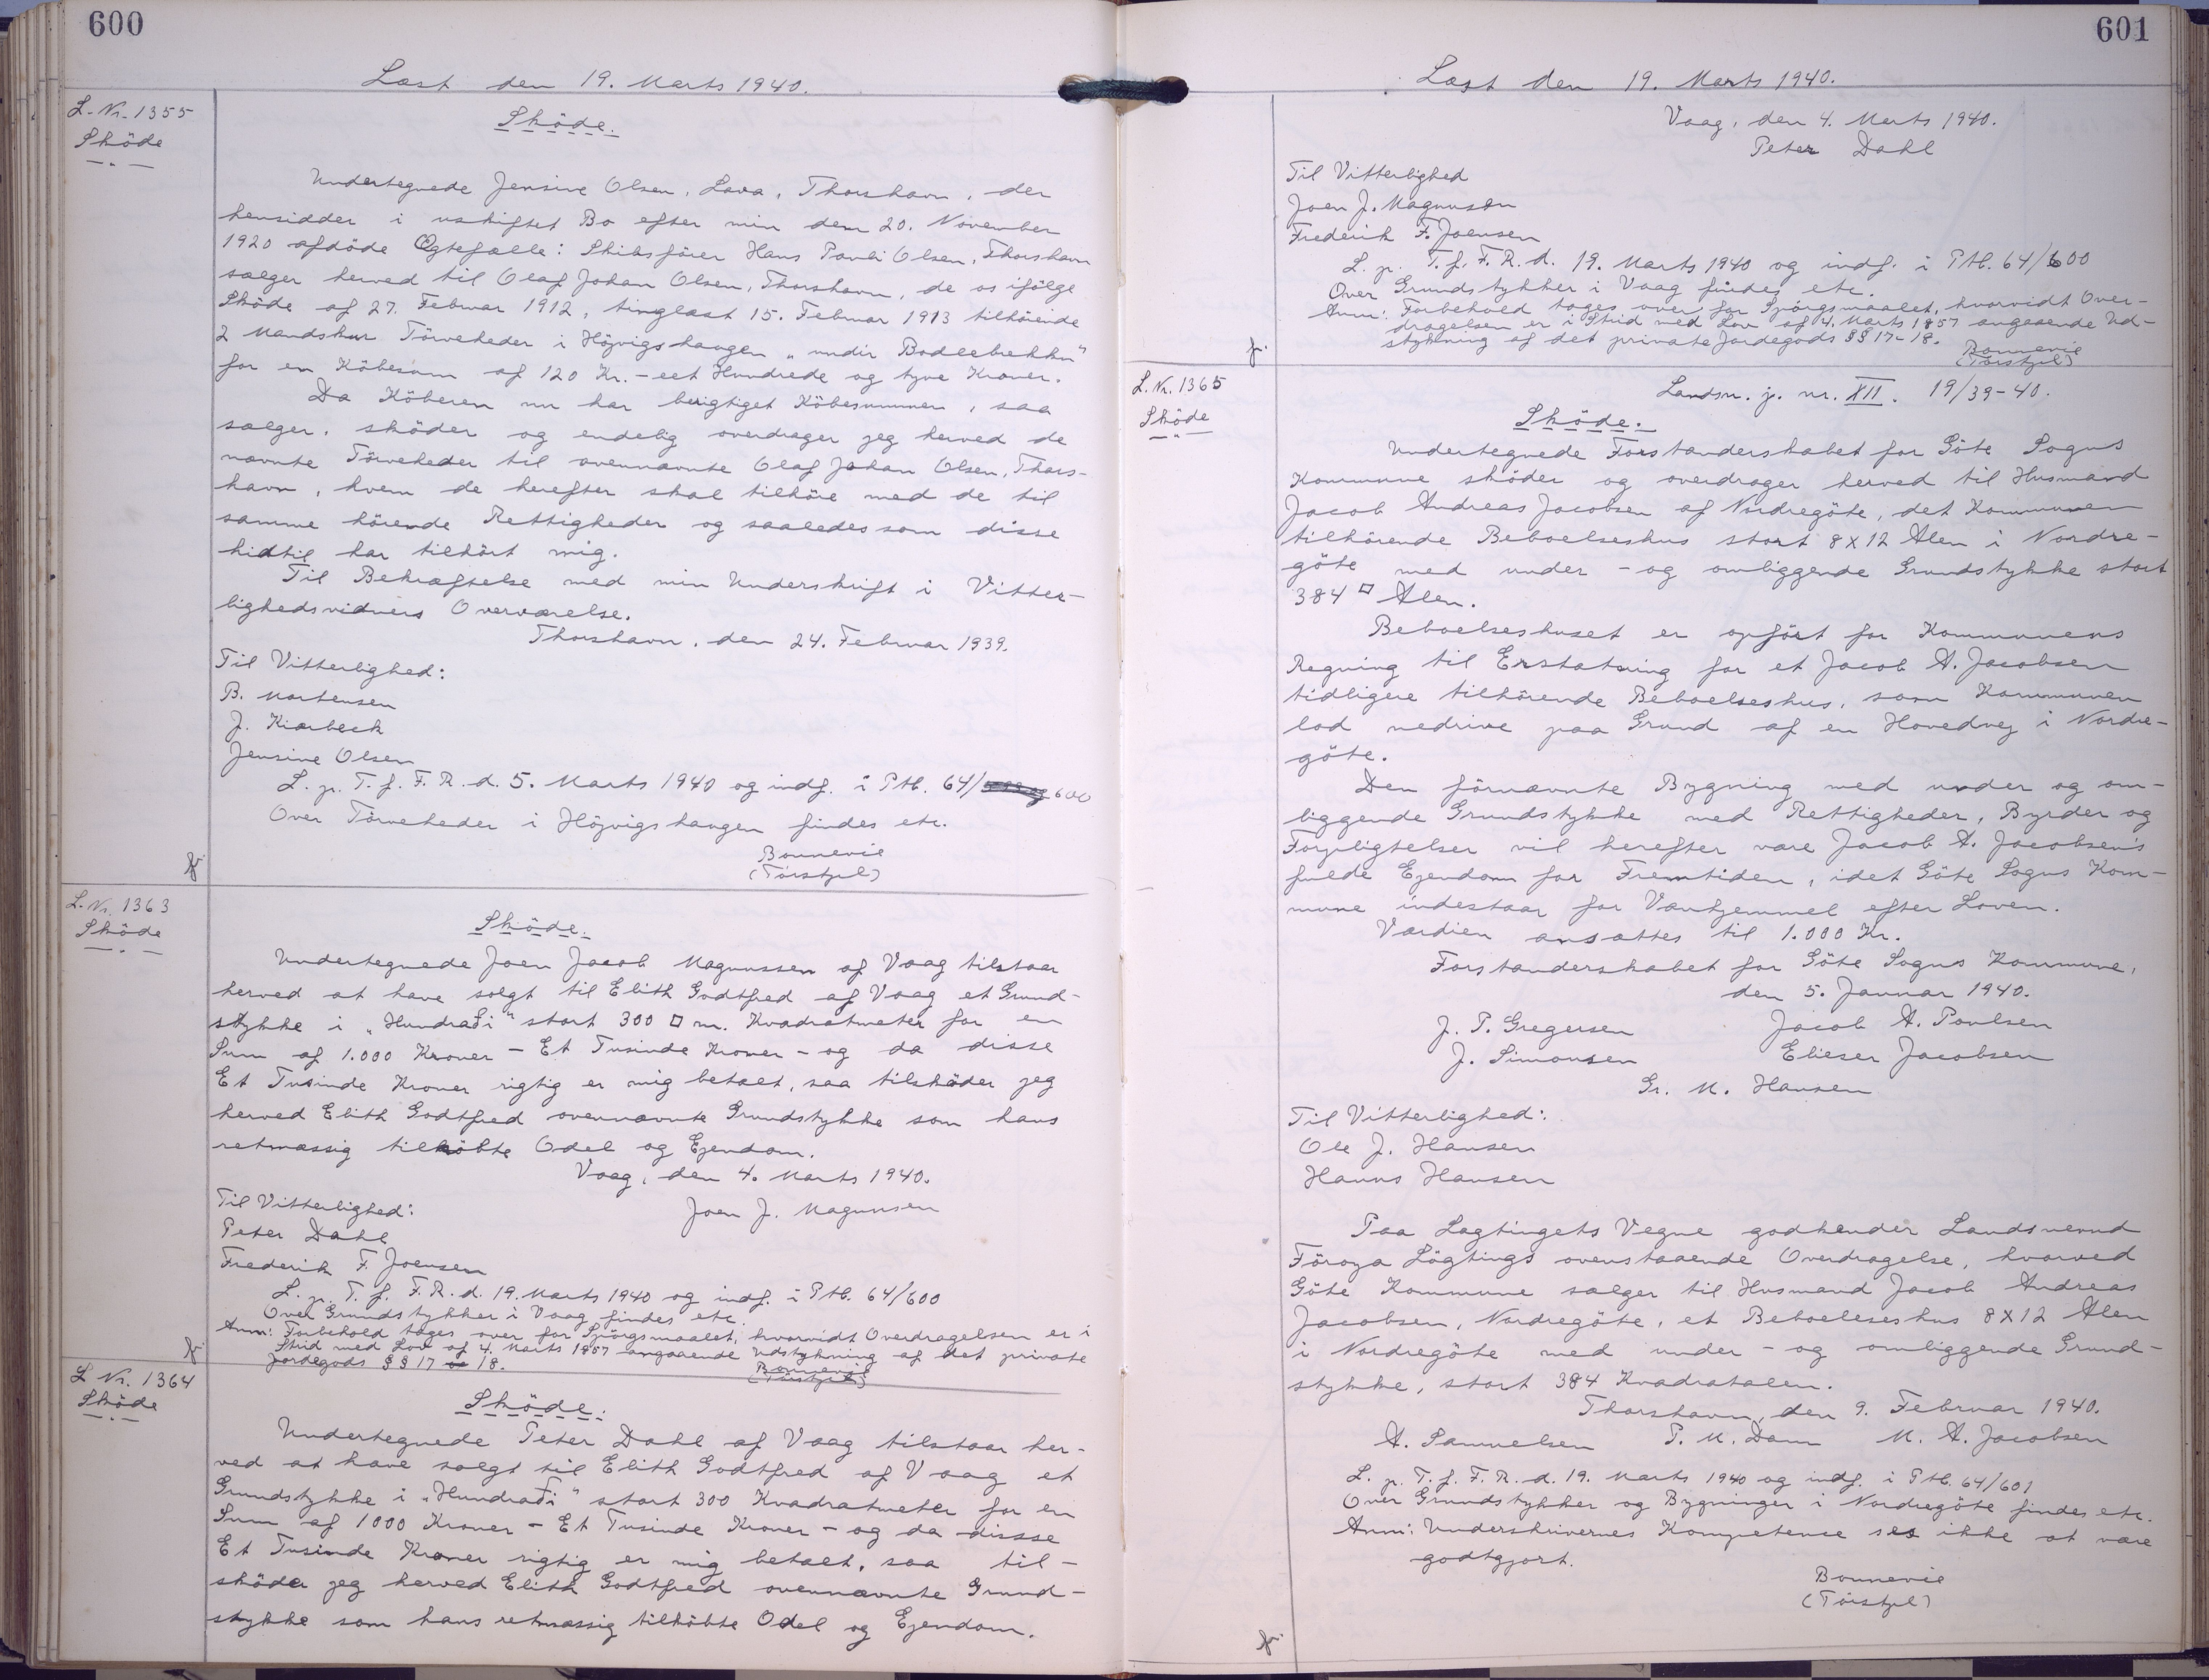 600
Læst den 19. Marts 1940.
L. Nr. 1355
Sköde
Sköde.
Undertegnede Jensine Olsen, Lava, Thorshavn, der
hensidder i uskiftet Bo efter min den 20. November
1920 afdöde Ægtefælle: Skibsförer Hans Pauli Olsen, Thorshavn
sælger herved til Olaf Johan Olsen, Thorshavn, de os ifölge
Sköde af 27. Februar 1912, tinglæst 15. Februar 1913 tilhörende
2 Mandskur Törveheder i Höjvigshaugen „undir
for en Köbesum af 120 Kr. - eet Hundrede og tyve Kroner.
Da Köberen nu har berigtiget Köbesummen, saa
sælger, sköder og endelig overdrager jeg herved de
nævnte Törveheder til ovennævnte Olaf Johan Olsen, Thors-
havn, hvem de herefter skal tilhöre med de til
samme hörende Rettigheder og saaledes som disse
hidtil har tilhört mig.
Til Bekræftelse med min Underskrift i Vitter-
lighedsvidners Overværelse.
Thorshavn, den 24. Februar 1939.
Til Vitterlighed:
B. Mortensen
J. Kiærbech
Jensine Olsen
L. p. T. f. F. R. d. 5. Marts 1940 og indf. i Ptb. 64/600
Over Törveheder i Höjvigshaugen findes etc.
Bonnevie
(Törstzel)
L. Nr. 1363
Sköde
Sköde.
Undertegnede Joen Jacob Magnussen af Vaag tilstaar
herved at have solgt til Elith Godtfred af Vaag et Grund-
stykke i „Hundraði" stort 300 □ m. Kvadratmeter for en
Sum af 1.000 Kroner - Et Tusinde Kroner - og da disse
Et Tusinde Kroner rigtig er mig betalt, saa tilsköder jeg
herved Elith Godtfred ovennævnte Grundstykke som hans
retmæssig tilköbte Odel og Ejendom.
Vaag, den 4. Marts 1940.
Til Vitterlighed:
Joen J. Magnusen
Peter Dahl
Frederik F. Joensen
L. p. T. f. F. R. d. 19. Marts 1940 og indf. i Ptb. 64/600
Over Grundstykker i Vaag findes etc.
Anm: Forbehold tages over for Spörgsmaalet, hvorvidt Overdragelsen er i
Strid med Lov af 4. Marts 1857 angaaende Udstykning af det private
Jordegods §§ 17 18.
Bonnevie
(Törstzel)
L. Nr. 1364
Sköde
Sköde.
Undertegnede Peter Dahl af Vaag tilstaar her-
ved at have solgt til Elith Godtfred af Vaag et
Grundstykke i „Hundraði" stort 300 Kvadratmeter for en
Sum af 1000 Kroner - Et Tusinde Kroner - og da disse
Et Tusinde Kroner rigtig er mig betalt, saa til-
sköder jeg herved Elith Godtfred ovennævnte Grund-
stykke som hans retmæssig tilköbte Odel og Ejendom.
601
Læst den 19. Marts 1940.
Vaag, den 4. Marts 1940.
Peter Dahl
Til Vitterlighed
Joen J. Magnusen
Frederik F. Joensen
L. p. T. f. F. R. d. 19. Marts 1940 og indf. i Ptb. 64/600
Over Grundstykker i Vaag findes etc.
Anm: Forbehold tages over for Spörgsmaalet, hvorvidt Over-
dragelsen er i Strid med Lov af 4. Marts 1857 angaaende Ud-
stykning af det private Jordegods §§ 17-18.
Bonnevie
(Törstzel)
L. Nr. 1365
Sköde
Landsn. j. nr. XII. 19/39-40.
Sköde.
Undertegnede Forstanderskabet for Göte Sogns
Kommune sköder og overdrager herved til Husmand
Jacob Andreas Jacobsen af Nordregöte, det Kommunen
tilhörende Beboelseshus stort 8 X 12 Alen i Nordre-
göte med under- og omliggende Grundstykke stort
384 □ Alen.
Beboelseshuset er opfört for Kommunens
Regning til Erstatning for et Jacob A. Jacobsen
tidligere tilhörende Beboelseshus, som Kommunen
lod nedrive paa Grund af en Hovedvej i Nordre-
göte.
Den förnævnte Bygning med under og om-
liggende Grundstykke med Rettigheder, Byrder og
Forpligtelser vil herefter være Jacob A. Jacobsen's
fulde Ejendom for Fremtiden, idet Göte Sogns Kom-
mune indestaar for Vanhjemmel efter Loven.
Værdien ansættes til 1.000 Kr.
Forstanderskabet for Göte Sogns Kommune,
den 5. Januar 1940.
J. P. Gregersen Jacob A. Poulsen
J. Simonsen Elieser Jacobsen
Gr. M. Hansen
Til Vitterlighed:
Ole J. Hansen
Hanns Hansen
Paa Lagtingets Vegne godkender Landsnevnd
Föroya Lögtings ovenstaaende Overdragelse, hvorved
Göte Kommune sælger til Husmand Jacob Andreas
Jacobsen, Nordregöte, et Beboelseshus 8 X 12 Alen
i Nordregöte med under- og omliggende Grund-
stykke, stort 384 Kvadratalen.
Thorshavn, den 9. Februar 1940.
A. Samuelsen P. M. Dam M. A. Jacobsen
L. p. T. f. F. R. d. 19. Marts 1940 og indf. i Ptb. 64/601
Over Grundstykker og Bygninger i Nordregöte findes etc.
Anm: Underskrivernes Kompetence ses ikke at være
godtgjort.
Bonnevie
(Törstzel)